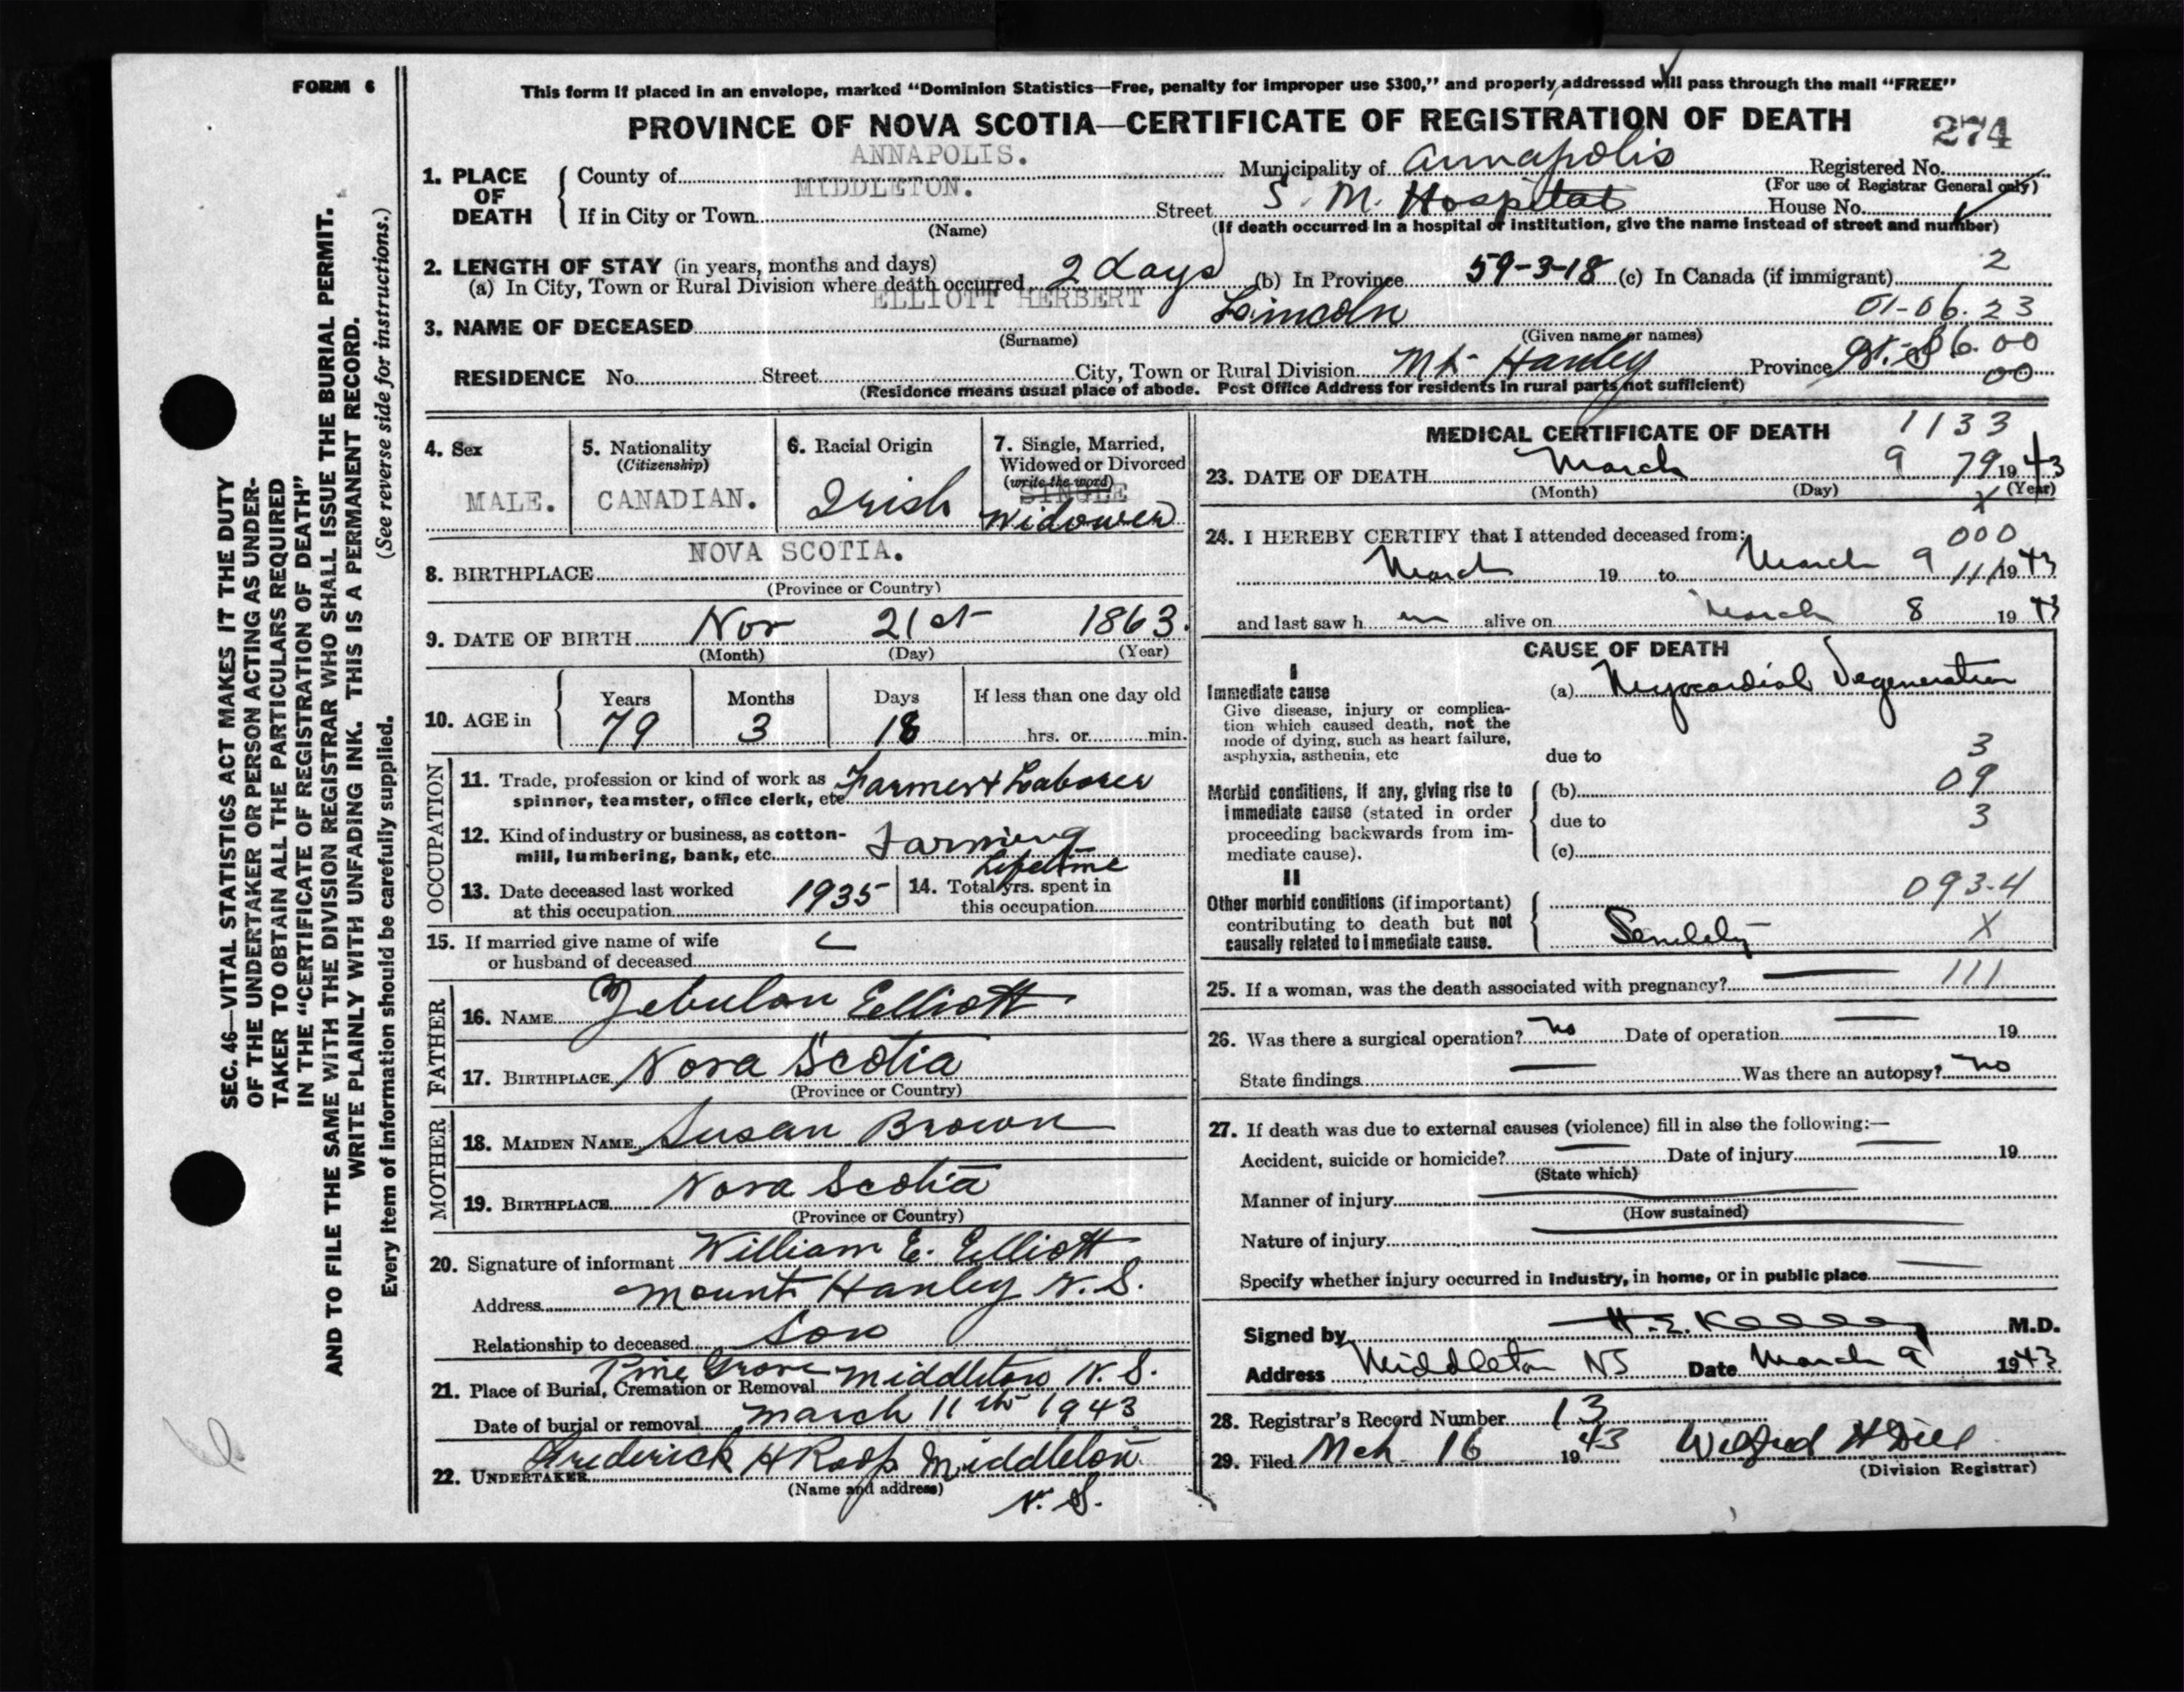 FORM 6
This form if placed in an envelope, marked "Dominion Statistics—Free, penalty for improper use $300," and properly addressed will pass through the mail "FREE"
PROVINCE OF NOVA SCOTIA—CERTIFICATE OF REGISTRATION OF DEATH
274
1. PLACE OF DEATH
County of ANNAPOLIS. Municipality of Annapolis Registered No.
(For use of Registrar General only)
If in City or Town MIDDLETON. Street S. M. Hospital House No.
(Name) (If death occurred in a hospital or institution, give the name instead of street and number)
2. LENGTH OF STAY (in years, months and days)
(a) In City, Town or Rural Division where death occurred 2 days (b) In Province 59-3-18 (c) In Canada (if immigrant) 2
3. NAME OF DECEASED ELLIOTT HERBERT Lincoln 01-06.23
(Surname) (Given name or names)
RESIDENCE No. Street City, Town or Rural Division Mt Hanley Province 06.00
00
(Residence means usual place of abode. Post Office Address for residents in rural parts not sufficient)
4. Sex
MALE.
5. Nationality
(Citizenship)
CANADIAN.
6. Racial Origin
Irish
7. Single, Married,
Widowed or Divorced
(write the word)
SINGLE
Widower
8. BIRTHPLACE NOVA SCOTIA.
(Province or Country)
9. DATE OF BIRTH Nov 21st 1863.
(Month) (Day) (Year)
10. AGE in
Years Months Days If less than one day old
79 3 18 hrs. or min.
OCCUPATION
11. Trade, profession or kind of work as
spinner, teamster, office clerk, etc. Farmer & Laborer
12. Kind of industry or business, as cotton-
mill, lumbering, bank, etc. Farming
13. Date deceased last worked
at this occupation 1935
14. Total yrs. spent in
this occupation Lifetime
15. If married give name of wife
or husband of deceased
FATHER
16. NAME Zebulon Elliott
17. BIRTHPLACE Nova Scotia
(Province or Country)
MOTHER
18. MAIDEN NAME Susan Brown
19. BIRTHPLACE Nova Scotia
(Province or Country)
20. Signature of informant William E. Elliott
Address Mount Hanley N.S.
Relationship to deceased Son
21. Place of Burial, Cremation or Removal Pine Grove Middleton N.S.
Date of burial or removal March 11th 1943
22. UNDERTAKER Frederick H Roop Middleton
(Name and address)
N.S.
MEDICAL CERTIFICATE OF DEATH
1133
23. DATE OF DEATH March 9 79 1943
(Month) (Day) (Year)
X
24. I HEREBY CERTIFY that I attended deceased from:
000
March 19 to March 9 11/ 1943
and last saw h im alive on March 8 1943
CAUSE OF DEATH
I
Immediate cause
Give disease, injury or complica-
tion which caused death, not the
mode of dying, such as heart failure,
asphyxia, asthenia, etc
(a) Myocardial Degeneration
due to
3
Morbid conditions, if any, giving rise to
immediate cause (stated in order
proceeding backwards from im-
mediate cause).
(b) 09
due to 3
(c)
II
Other morbid conditions (if important)
contributing to death but not
causally related to immediate cause.
093-4
Senility X
25. If a woman, was the death associated with pregnancy? 111
26. Was there a surgical operation? no Date of operation 19
State findings Was there an autopsy? no
27. If death was due to external causes (violence) fill in also the following:—
Accident, suicide or homicide? Date of injury 19
(State which)
Manner of injury
(How sustained)
Nature of injury
Specify whether injury occurred in industry, in home, or in public place
Signed by H. E. Kelley M.D.
Address Middleton NS Date March 9 1943
28. Registrar's Record Number 13
29. Filed Mch 16 1943 Wilfred H Diel
(Division Registrar)
SEC. 46—VITAL STATISTICS ACT MAKES IT THE DUTY
OF THE UNDERTAKER OR PERSON ACTING AS UNDER-
TAKER TO OBTAIN ALL THE PARTICULARS REQUIRED
IN THE "CERTIFICATE OF REGISTRATION OF DEATH"
AND TO FILE THE SAME WITH THE DIVISION REGISTRAR WHO SHALL ISSUE THE BURIAL PERMIT.
WRITE PLAINLY WITH UNFADING INK. THIS IS A PERMANENT RECORD.
Every item of information should be carefully supplied. (See reverse side for instructions.)